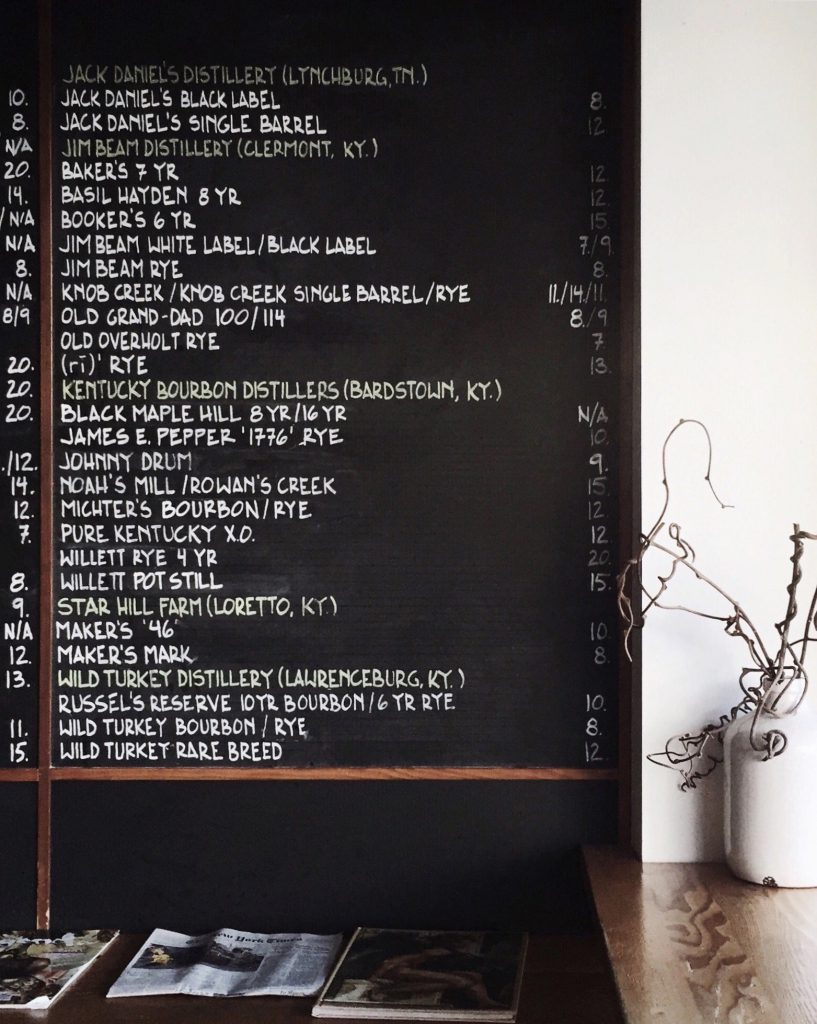 JACK DANIEL'S DISTILLERY (LYNCHBURG, TN.)
10. JACK DANIEL'S BLACK LABEL 8.
8. JACK DANIEL'S SINGLE BARREL 12
N/A JIM BEAM DISTILLERY (CLERMONT, KY.)
20. BAKER'S 7 YR 12.
14. BASIL HAYDEN 8 YR 12.
/N/A BOOKER'S 6 YR 15
N/A JIM BEAM WHITE LABEL/BLACK LABEL 7/9.
8. JIM BEAM RYE 8.
N/A KNOB CREEK/KNOB CREEK SINGLE BARREL/RYE 11./14./11.
8/9 OLD GRAND-DAD 100/114 8./9
OLD OVERHOLT RYE 7
20. (rī)' RYE 13.
20. KENTUCKY BOURBON DISTILLERS (BARDSTOWN, KY.)
20. BLACK MAPLE HILL 8 YR/16 YR N/A
JAMES E. PEPPER '1776' RYE 10.
./12. JOHNNY DRUM 9.
14. NOAH'S MILL/ROWAN'S CREEK 15
12. MICHTER'S BOURBON/RYE 12.
7. PURE KENTUCKY X.O. 12
WILLETT RYE 4 YR 20.
8. WILLETT POT STILL 15.
9. STAR HILL FARM (LORETTO, KY.)
N/A MAKER'S '46' 10.
12. MAKER'S MARK 8.
13. WILD TURKEY DISTILLERY (LAWRENCEBURG, KY.)
RUSSEL'S RESERVE 10YR BOURBON/6 YR RYE 10.
11. WILD TURKEY BOURBON / RYE 8.
15. WILD TURKEY RARE BREED 12.
New York Times